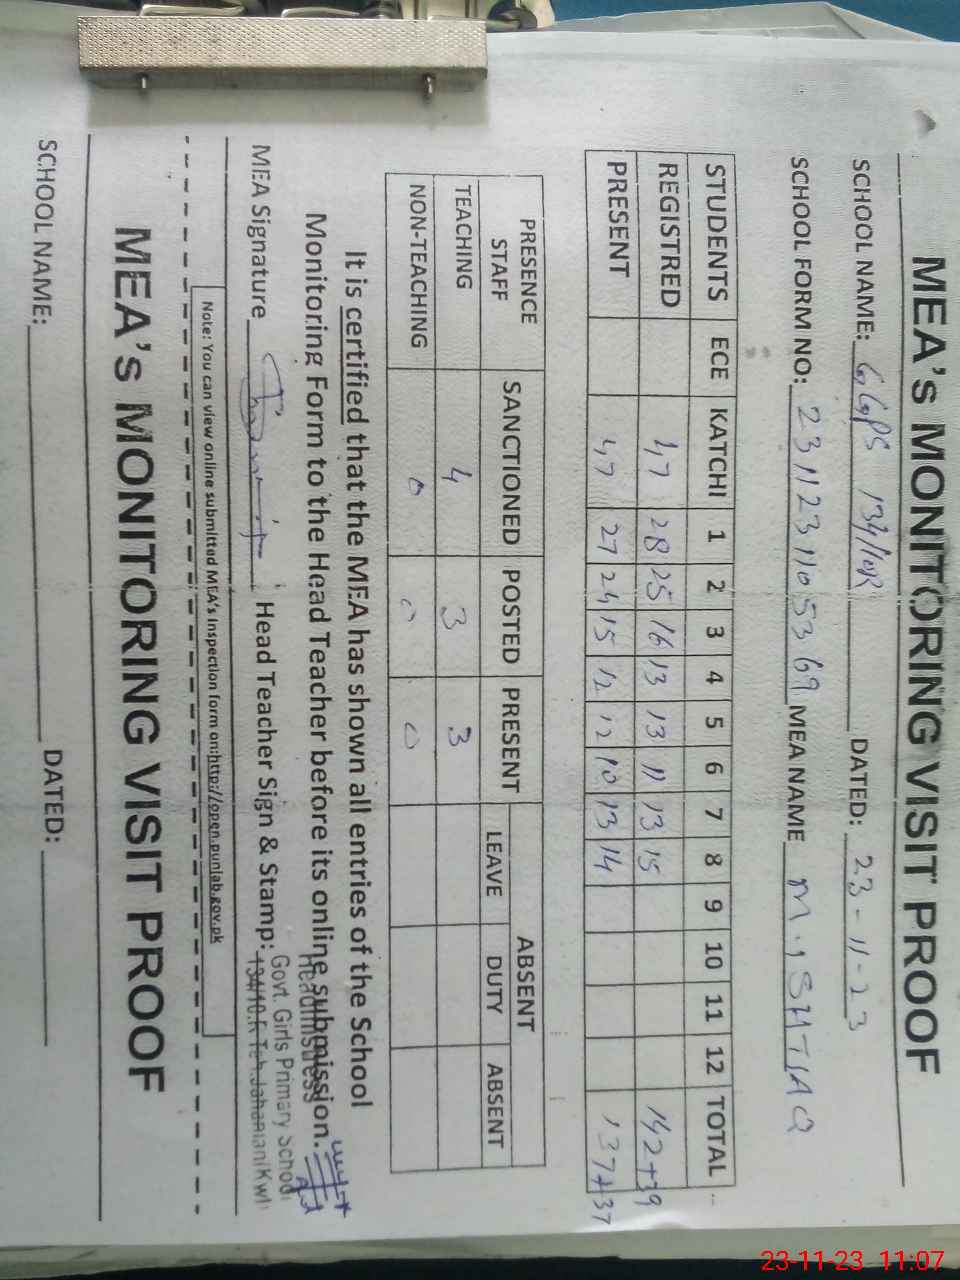 MEA's MONITORING VISIT PROOF
SCHOOL NAME: GGPS 134/10R DATED: 23-11-23
SCHOOL FORM NO: 2311231105369 MEA NAME M. ISHTIAQ
STUDENTS ECE KATCHI 1 2 3 4 5 6 7 8 9 10 11 12 TOTAL
REGISTRED 47 28 25 16 13 13 11 13 15 142+39
PRESENT 47 27 24 15 12 12 10 13 14 137+37
PRESENCE STAFF SANCTIONED POSTED PRESENT ABSENT
LEAVE DUTY ABSENT
TEACHING 4 3 3
NON-TEACHING 0 0 0
It is certified that the MEA has shown all entries of the School
Monitoring Form to the Head Teacher before its online submission.
MEA Signature Head Teacher Sign & Stamp:
Headmistress
Govt. Girls Primary School
134/10.R Teh.Jahanian(Kwl)
Note: You can view online submitted MEA's Inspection form on:http://open.punjab.gov.pk
MEA's MONITORING VISIT PROOF
SCHOOL NAME: DATED:
23-11-23 11:07